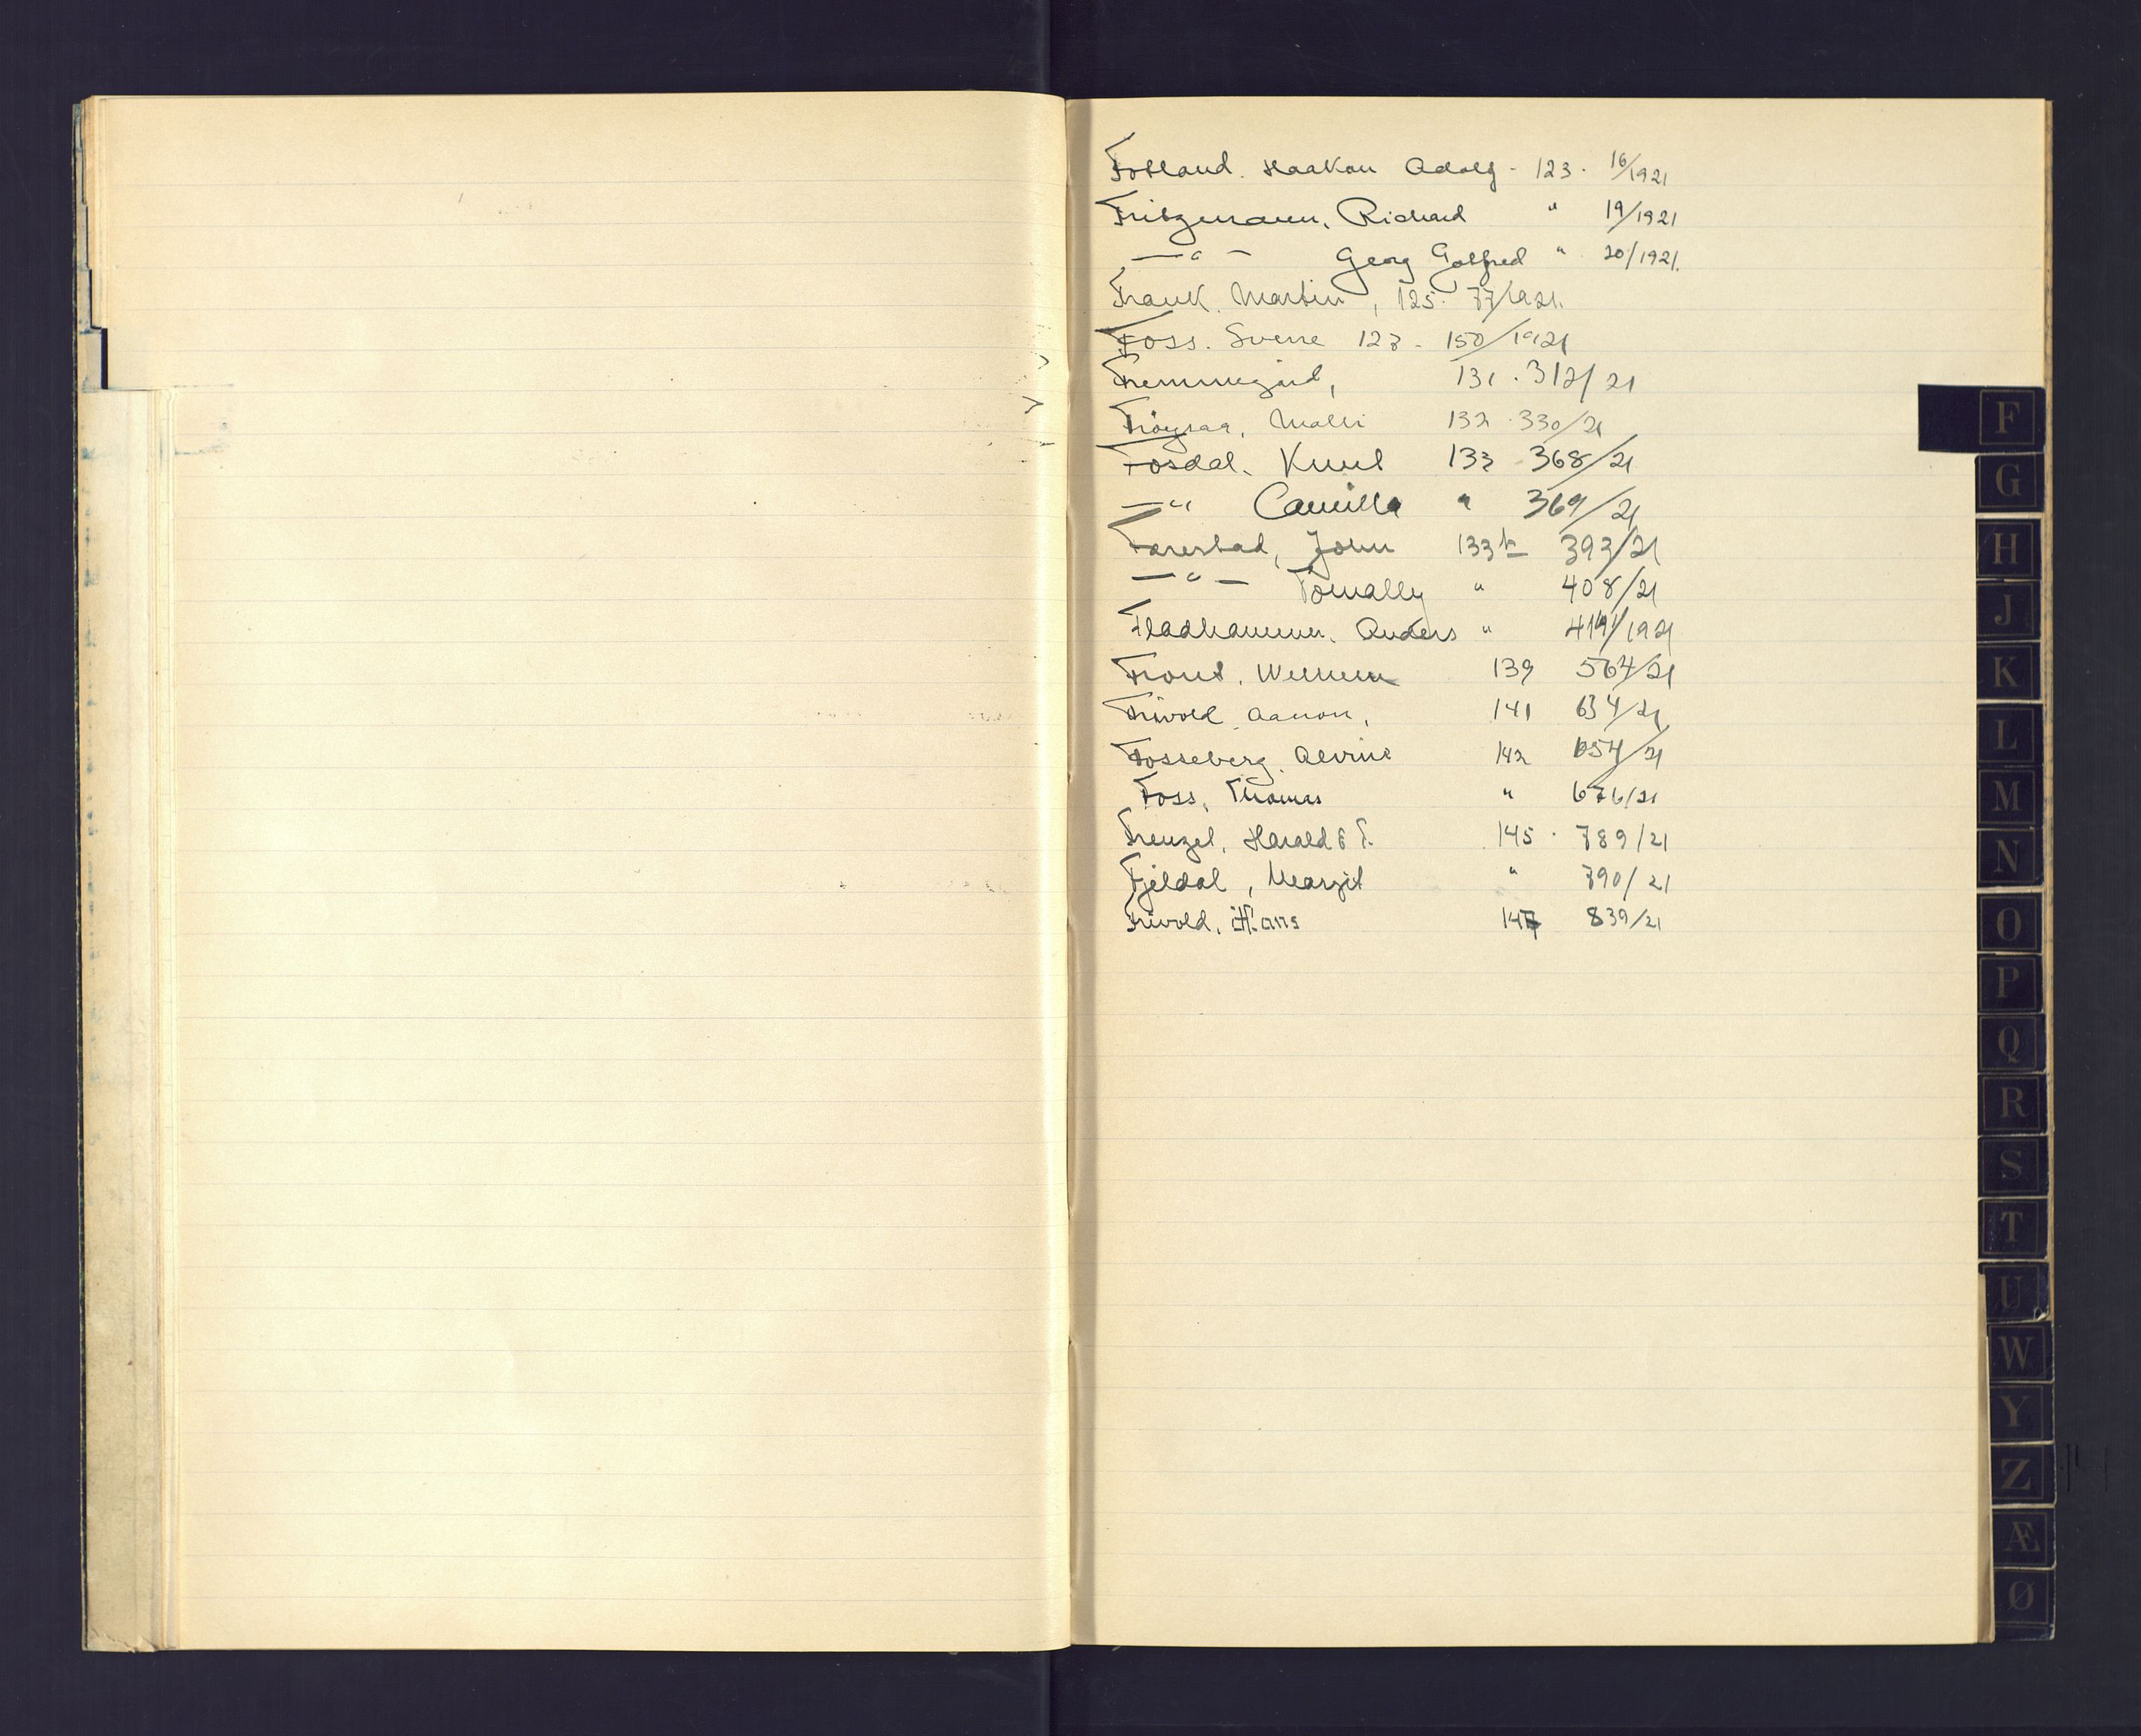 Fotland. Haakon Adolf - 123 - 16/1921
Fritzmann, Richard " 19/1921
—"— Georg Gotfred " 20/1921.
Frank. Martin, 125. 77/1921.
Foss. Sverre 128 - 150/1921
Fremmegård, 131 . 312/21
Frøysaa, Malli 132 . 330/21
Fosdal. Knut 133 368/21
—"— Camilla " 369/21
Farestad, John 133 393/21
—"— Tomally " 408/21
Fladhammer. Anders " /1921
Front. 139 564/21
Frivold Aanon, 141 634/21
Fosseberg. Alvine 142 654/21
Foss, Thomas " 676/21
Frenzel, Harald F. 145 . 789/21
Fjeldal, Margit " 790/21
Frivold, Hans 147 839/21
F
G
H
J
K
L
M
N
O
P
Q
R
S
T
U
W
Y
Z
Æ
Ø